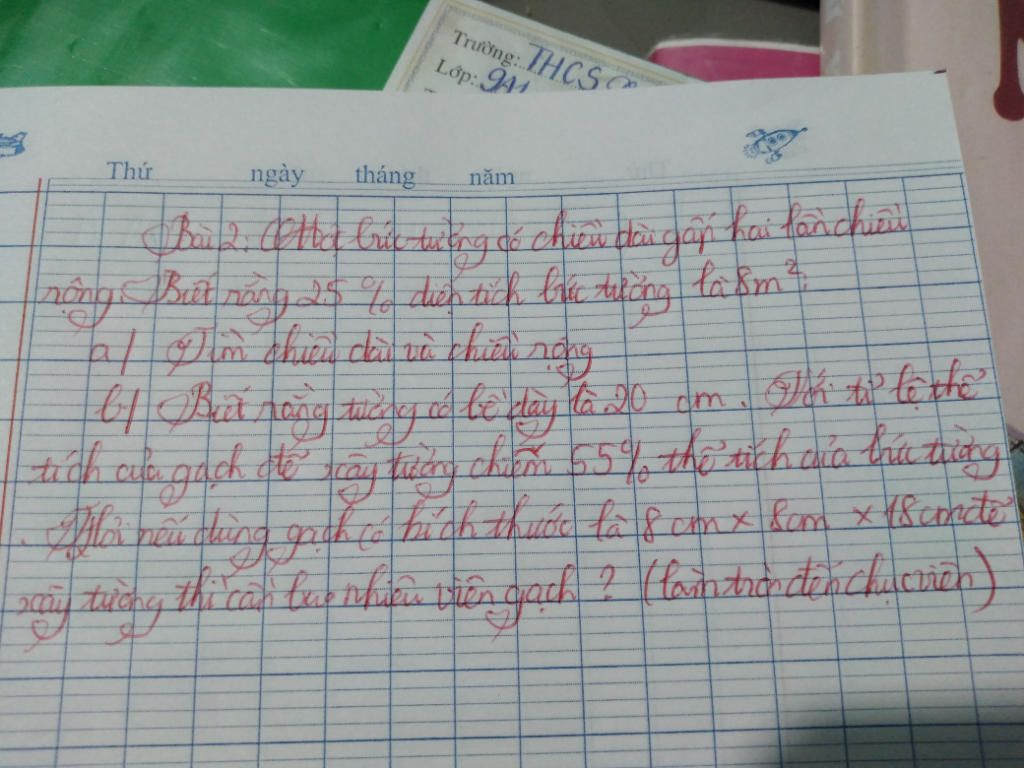 Trường: THCS
Lớp: 9A1
Thứ ngày tháng năm
Bài 2: Một bức tường có chiều dài gấp hai lần chiều
rộng. Biết rằng 25 % diện tích bức tường là 8m².
a/ Tìm chiều dài và chiều rộng
b/ Biết rằng tường có bề dày là 20 cm. Với tỉ lệ thể
tích của gạch để xây tường chiếm 55% thể tích của bức tường
. Hỏi nếu dùng gạch có kích thước là 8 cm × 8cm × 18cm để
xây tường thì cần bao nhiêu viên gạch ? (làm tròn đến chục viên)